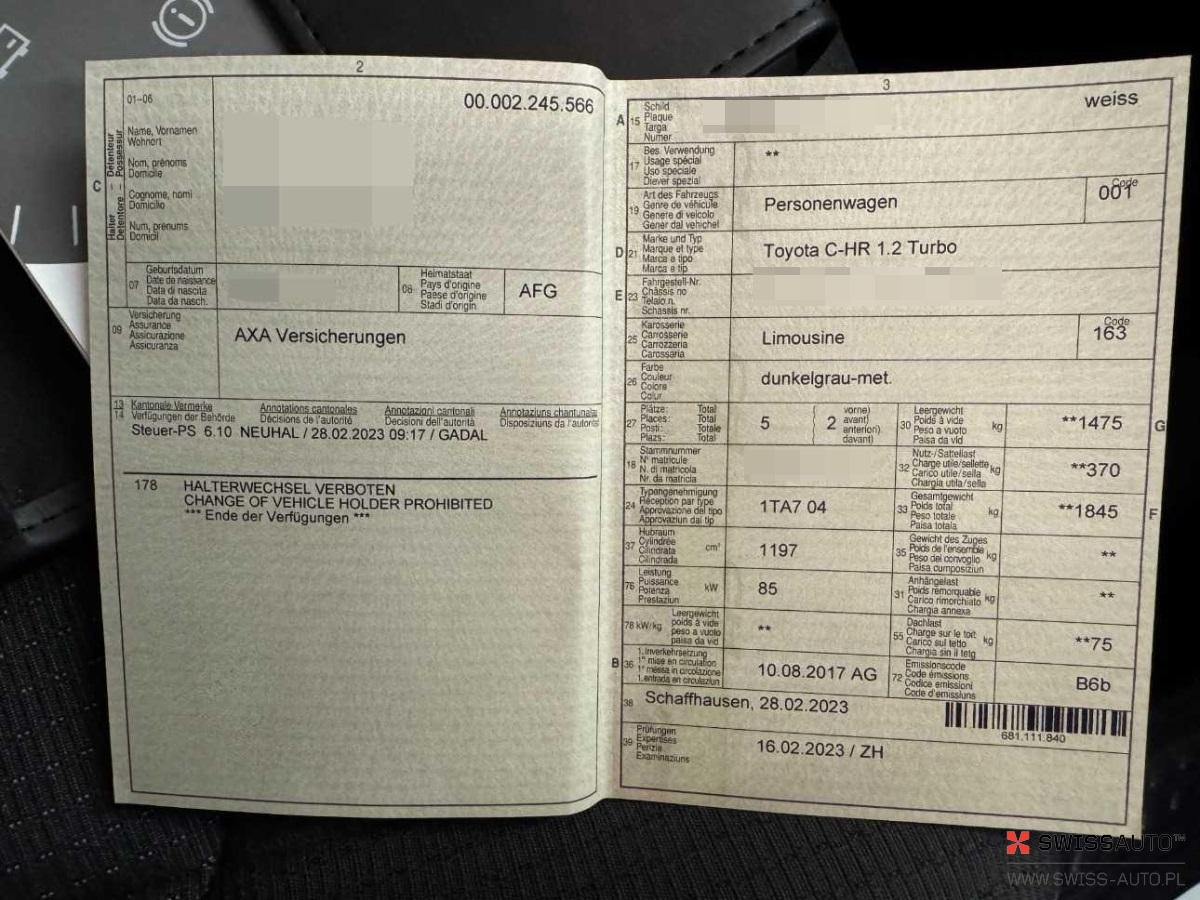 2
01-06
00.002.245.566
C
Halter – Détenteur
Detentore – Possessur
Name, Vornamen
Wohnort
Nom, prénoms
Domicile
Cognome, nomi
Domicilio
Num, prenums
Domicil
07
Geburtsdatum
Date de naissance
Data di nascita
Data da nasch.
08
Heimatstaat
Pays d'origine
Paese d'origine
Stadi d'origin
AFG
09
Versicherung
Assurance
Assicurazione
Assicuranza
AXA Versicherungen
13 Kantonale Vermerke Annotations cantonales Annotazioni cantonali Annotaziuns chantunalas
14 Verfügungen der Behörde Décisions de l'autorité Decisioni dell'autorità Disposiziuns da l'autorité
Steuer-PS 6.10 NEUHAL / 28.02.2023 09:17 / GADAL
178 HALTERWECHSEL VERBOTEN
CHANGE OF VEHICLE HOLDER PROHIBITED
*** Ende der Verfügungen ***
3
A 15
Schild
Plaque
Targa
Numer
weiss
17
Bes. Verwendung
Usage spécial
Uso speciale
Diever spezial
**
19
Art des Fahrzeugs
Genre de véhicule
Genere di veicolo
Gener dal vehichel
Personenwagen
Code
001
D 21
Marke und Typ
Marque et type
Marca e tipo
Marca e tip
Toyota C-HR 1.2 Turbo
E 23
Fahrgestell-Nr.
Châssis no
Telaio n.
Schassis nr.
25
Karosserie
Carrosserie
Carrozzeria
Carossaria
Limousine
Code
163
26
Farbe
Couleur
Colore
Colur
dunkelgrau-met.
27
Plätze: Total
Places: Total
Posti: Totale
Plazs: Total
5 ( 2
vorne)
avant)
anteriori)
davant)
30
Leergewicht
Poids à vide
Peso a vuoto
Paisa da vid
kg
**1475
G
18
Stammnummer
N° matricule
N. di matricola
Nr. da matricla
32
Nutz-/Sattellast
Charge utile/sellette
Carico utile/sella
Chargia utila/sella
kg
**370
24
Typengenehmigung
Réception par type
Approvazione del tipo
Approvaziun dal tip
1TA7 04
33
Gesamtgewicht
Poids total
Peso totale
Paisa totala
kg
**1845
F
37
Hubraum
Cylindrée
Cilindrata
Cilindrada
cm³
1197
35
Gewicht des Zuges
Poids de l'ensemble
Peso del convoglio
Paisa cumposiziun
kg
**
76
Leistung
Puissance
Potenza
Prestaziun
kW
85
31
Anhängelast
Poids remorquable
Carico rimorchiato
Chargia annexa
kg
**
78 kW/kg
Leergewicht
poids à vide
peso a vuoto
paisa da vid
**
55
Dachlast
Charge sur le toit
Carico sul tetto
Chargia sin il tetg
kg
**75
B 36
1. Inverkehrsetzung
1re mise en circulation
1a messa in circolazione
1. entrada en circulaziun
10.08.2017 AG
72
Emissionscode
Code émissions
Codice emissioni
Code d'emissiuns
B6b
38
Schaffhausen, 28.02.2023
681.111.840
39
Prüfungen
Expertises
Perizie
Examinaziuns
16.02.2023 / ZH
SWISSAUTO™
WWW.SWISS-AUTO.PL